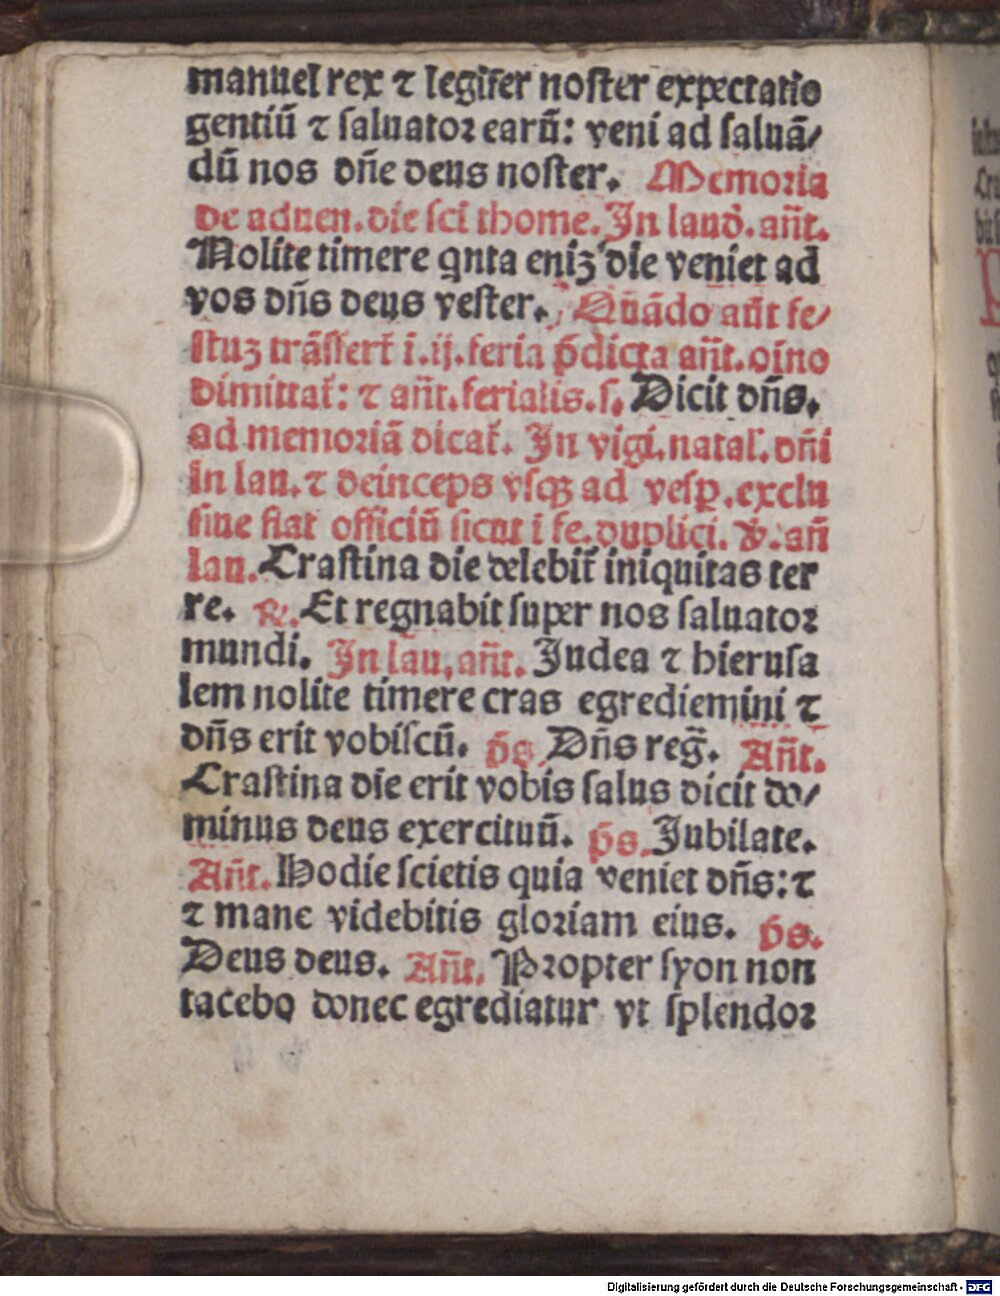 manuel rex ⁊ legifer noster expectatio
gentiū ⁊ saluator earū: veni ad saluā/
dū nos dn̄e deus noster. Memoria
de aduen. die sci thome. In laud. an̄t.
Nolite timere qnta eniꝫ die veniet ad
vos dn̄s deus vester. Qn̄ādo an̄t fe/
stuꝫ trāsfert̄ i .ij. feria p̄dicta an̄t. oīno
dimittat̄: ⁊ an̄t. ferialis. s. Dicit dn̄s.
ad memoriā dicat̄. In vigi. natal. dn̄i
in lau. ⁊ deinceps vsqꝫ ad vesp̱. exclu
siue fiat officiū sicut i fe. duplici. ℣. an̄
lau. Crastina die delebit̄ iniquitas ter
re. ℟. Et regnabit super nos saluator
mundi. In lau. an̄t. Iudea ⁊ hierusa
lem nolite timere cras egrediemini ⁊
dn̄s erit vobiscū. p̄s. Dn̄s reḡ. An̄t.
Crastina die erit vobis salus dicit do/
minus deus exercituū. p̄s. Jubilate.
An̄t. Hodie scietis quia veniet dn̄s: ⁊
⁊ mane videbitis gloriam eius. p̄s.
Deus deus. An̄t. Propter syon non
tacebo donec egrediatur vt splendor
Digitalisierung gefördert durch die Deutsche Forschungsgemeinschaft - DFG